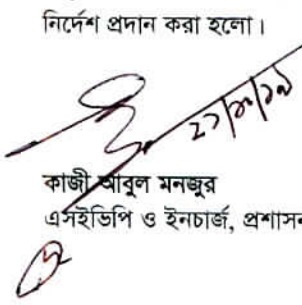 নির্দেশ প্রদান করা হলো।
কাজী আবুল মনজুর
এসইভিপি ও ইনচার্জ, প্রশাসন